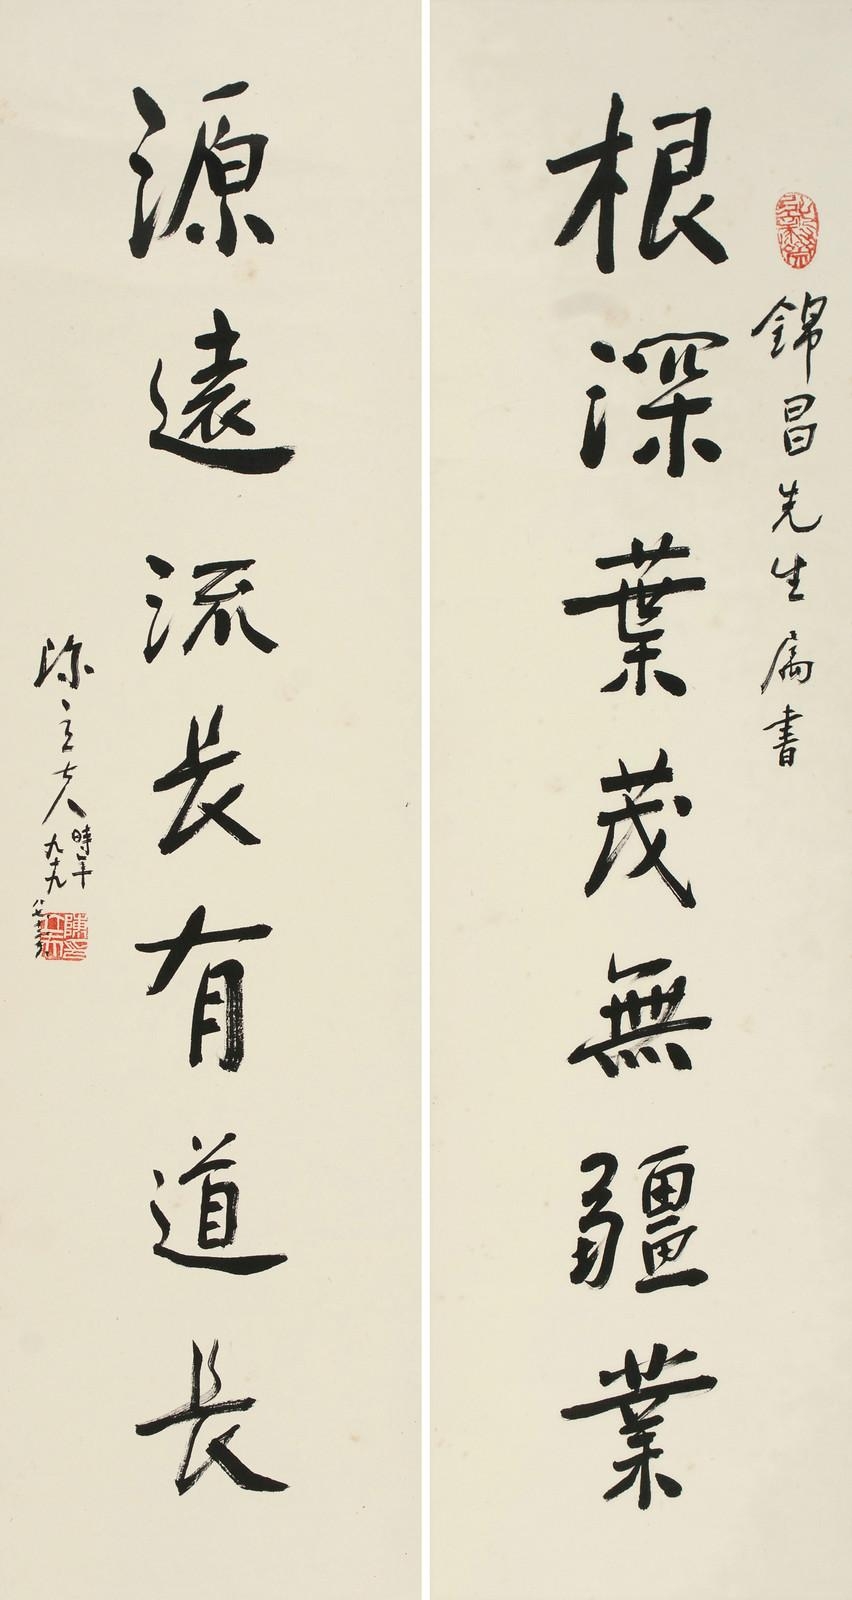 錦昌先生屬書
根深葉茂無疆業
源遠流長有道長
陳立夫
時年
九十九